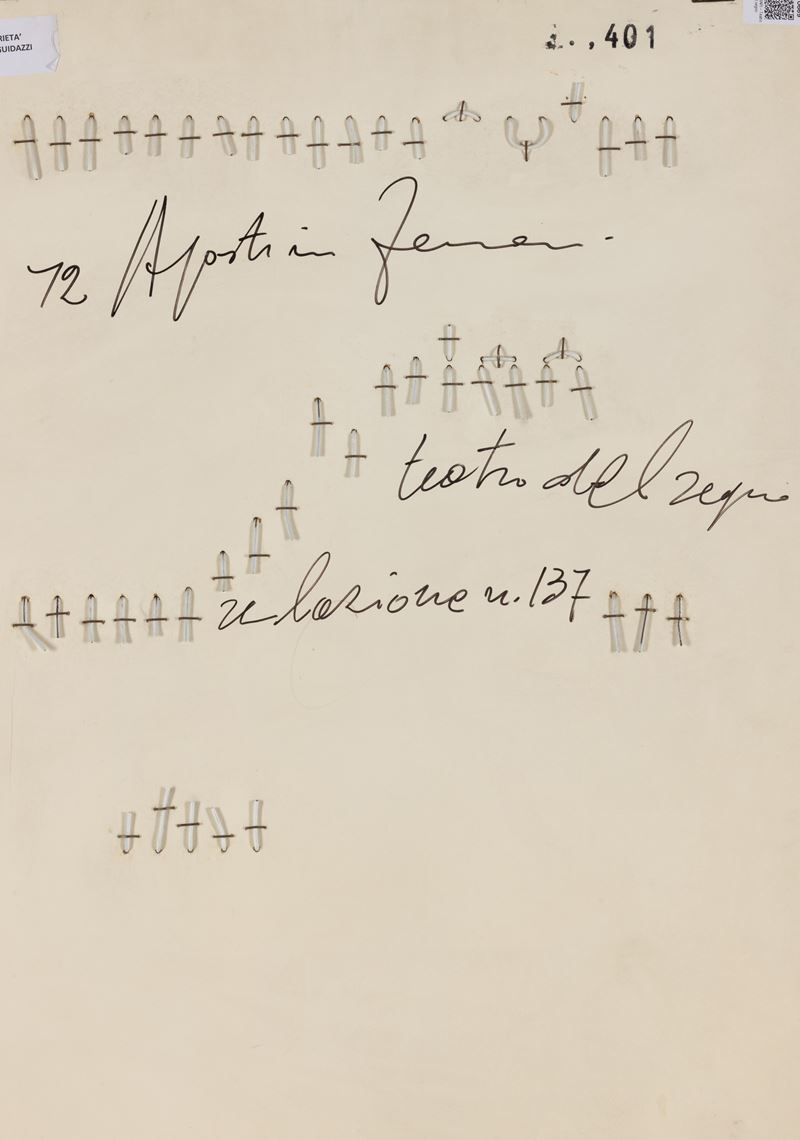 RIETA'
GUIDAZZI
.,401
72 Agostin Ferrari
teatro del segno
relazione n. 137